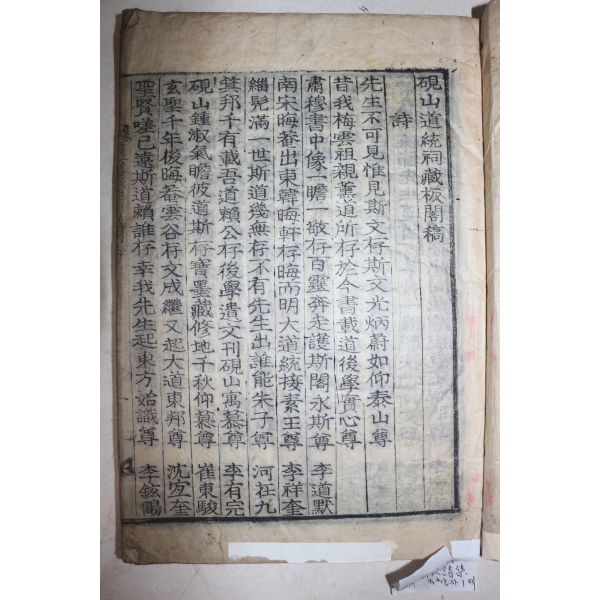 硯山道統祠藏板閣稿
詩
先生不可見惟見斯文存斯文光炳蔚如仰泰山尊
昔我梅雲祖親薰道所存於今書載道後學實心尊
肅穆書中像一瞻一敬存百靈奔走護斯閣永斯尊 李道默
南宋晦菴出東韓晦軒存晦而明大道統接素王尊 李祥奎
緇髡滿一世斯道幾無存不有先生出誰能朱子尊 河在九
箕邦千有載吾道賴公存後學遺文刊硯山寓慕尊 李有完
硯山鍾淑氣瞻彼道斯存寶墨藏修地千秋仰慕尊 崔東駿
玄聖千年後晦菴雲谷存文成繼又起大道東邦尊 沈宜奎
聖賢嗟已遠斯道賴誰存幸我先生起東方始識尊 李鉉